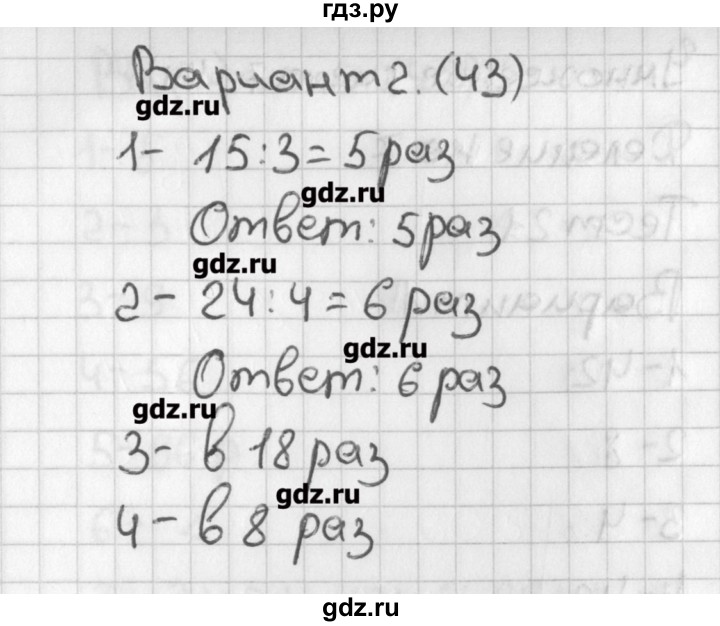 гдз.ру
Вариант 2. (43)
gdz.ru
1- 15:3= 5 раз
gdz.ru
Ответ: 5 раз
gdz.ru
2- 24:4= 6 раз
gdz.ru
Ответ: 6 раз
gdz.ru
3- в 18 раз
gdz.ru
4- в 8 раз
gdz.ru